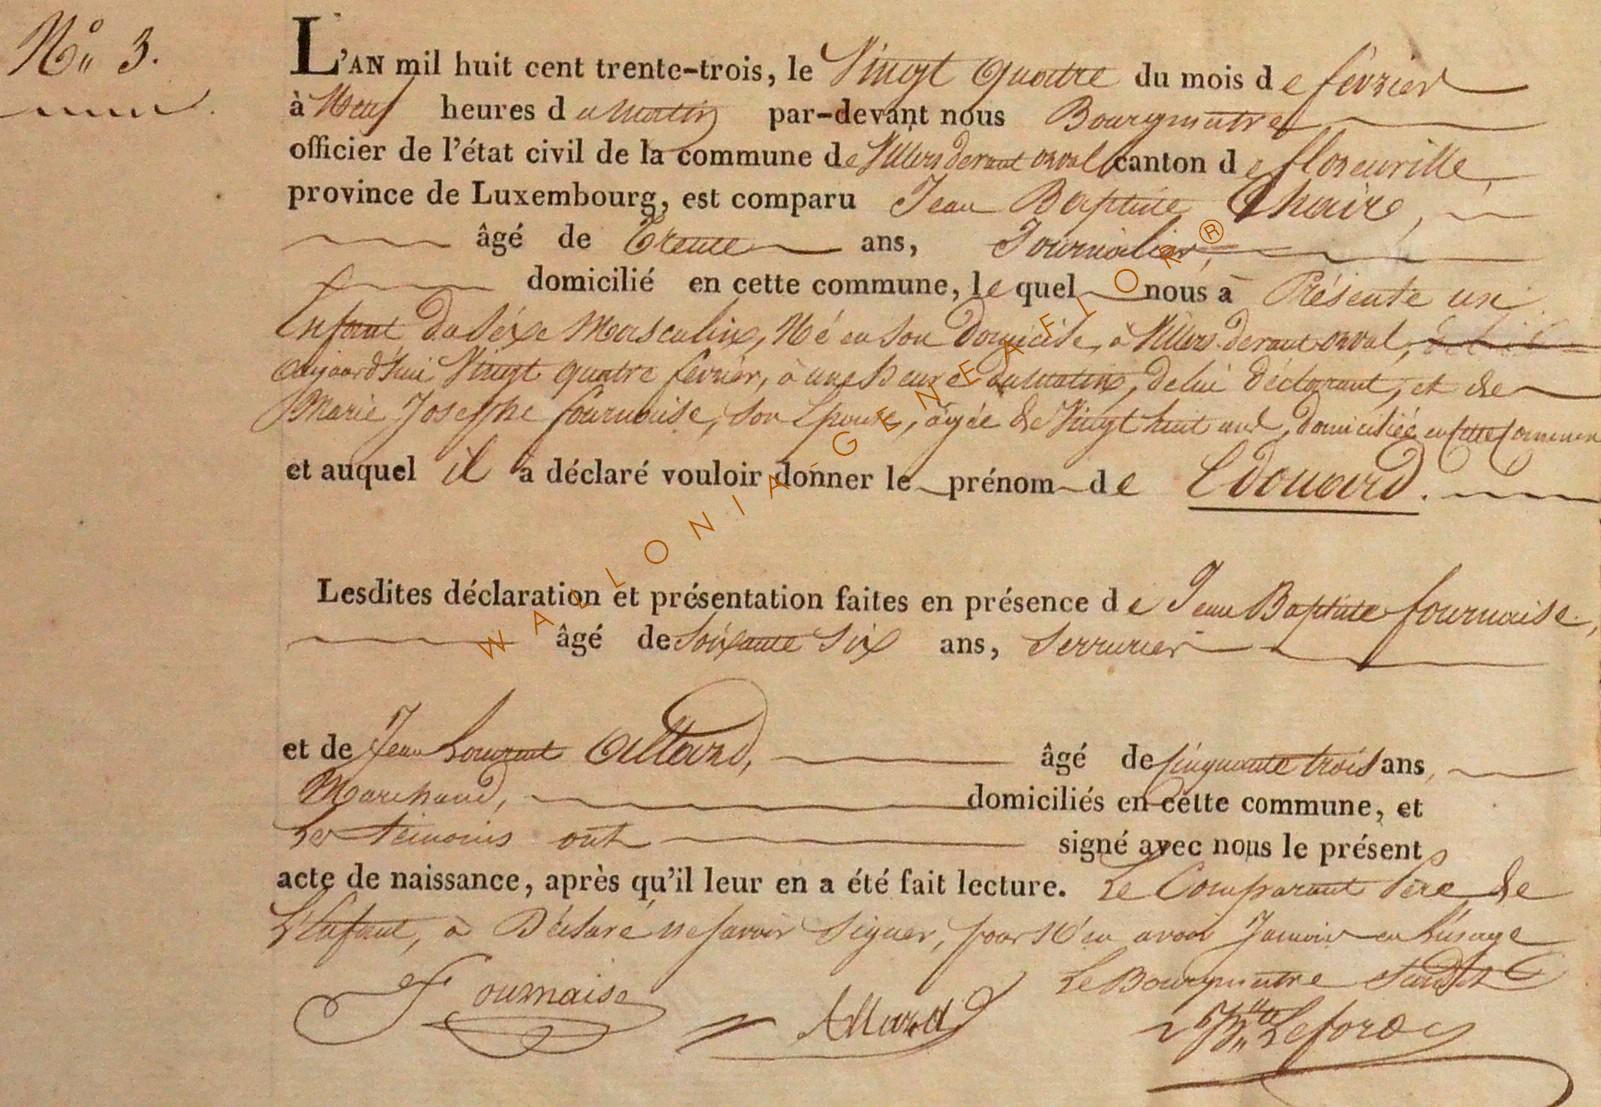 N° 3.
L'AN mil huit cent trente-trois, le Vingt Quatre du mois de février
à Neuf heures du Matin par-devant nous Bourgmêtre
officier de l'état civil de la commune de Villers devant orval canton de florenville
province de Luxembourg, est comparu Jean Baptiste Thaire,
âgé de Trente ans, Journalier,
domicilié en cette commune, le quel nous à Présenté un
Enfant du Séxe Masculin, Né en Son Domicile, à Villers devant orval,
aujourd'hui Vingt quatre février, à une heure du Matin, de lui déclarant, et de
Marie Josephe fournaise, Son Epouse, âgée de Vingt huit ans, domiciliée en cette Commune
et auquel il à déclaré vouloir donner le prénom de Edouard.
Lesdites déclaration et présentation faites en présence de Jean Baptiste fournaise,
âgé de Soixante Six ans, Serrurier
et de Jean Laurent Allard, âgé de Cinquante trois ans,
Marchand, domiciliés en cette commune, et
Les témoins ont signé avec nous le présent
acte de naissance, après qu'il leur en a été fait lecture. Le Comparant Père de
L'Enfant, à Déclaré ne Savoir Signer, pour N'en avoir Jamais eu L'usage
Le Bourgmêtre Susdit
Fournaise Allard Leforo
WALLONIA-GENEAFLOR®